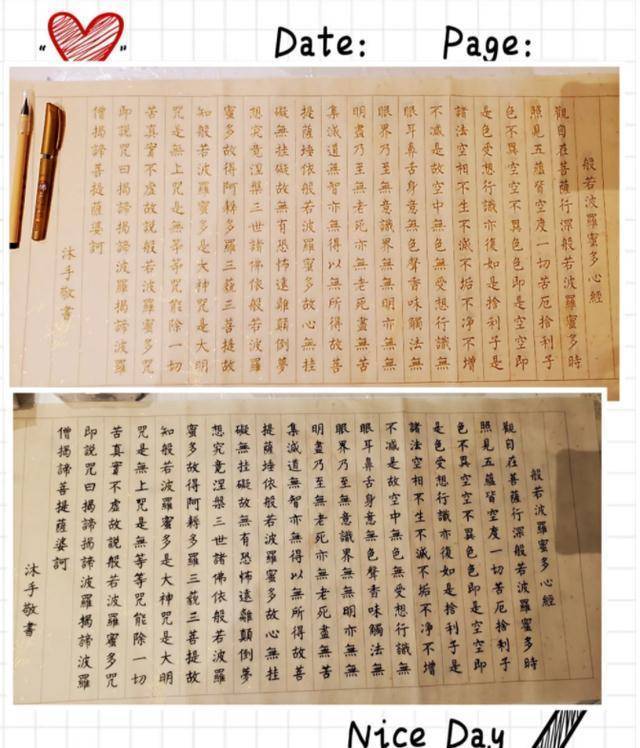 Date: Page:
般若波羅蜜多心經
觀自在菩薩行深般若波羅蜜多時
照見五蘊皆空度一切苦厄捨利子
色不異空空不異色色即是空空即
是色受想行識亦復如是捨利子是
諸法空相不生不滅不垢不淨不增
不減是故空中無色無受想行識無
眼耳鼻舌身意無色聲香味觸法無
眼界乃至無意識界無無明亦無無
明盡乃至無老死亦無老死盡無苦
集滅道無智亦無得以無所得故菩
提薩埵依般若波羅蜜多故心無挂
礙無挂礙故無有恐怖遠離顛倒夢
想究竟涅槃三世諸佛依般若波羅
蜜多故得阿耨多羅三藐三菩提故
知般若波羅蜜多是大神咒是大明
咒是無上咒是無等等咒能除一切
苦真實不虛故說般若波羅蜜多咒
即說咒曰揭諦揭諦波羅揭諦波羅
僧揭諦菩提薩婆訶
沐手敬書
般若波羅蜜多心經
觀自在菩薩行深般若波羅蜜多時
照見五蘊皆空度一切苦厄捨利子
色不異空空不異色色即是空空即
是色受想行識亦復如是捨利子是
諸法空相不生不滅不垢不淨不增
不減是故空中無色無受想行識無
眼耳鼻舌身意無色聲香味觸法無
眼界乃至無意識界無無明亦無無
明盡乃至無老死亦無老死盡無苦
集滅道無智亦無得以無所得故菩
提薩埵依般若波羅蜜多故心無挂
礙無挂礙故無有恐怖遠離顛倒夢
想究竟涅槃三世諸佛依般若波羅
蜜多故得阿耨多羅三藐三菩提故
知般若波羅蜜多是大神咒是大明
咒是無上咒是無等等咒能除一切
苦真實不虛故說般若波羅蜜多咒
即說咒曰揭諦揭諦波羅揭諦波羅
僧揭諦菩提薩婆訶
沐手敬書
Nice Day